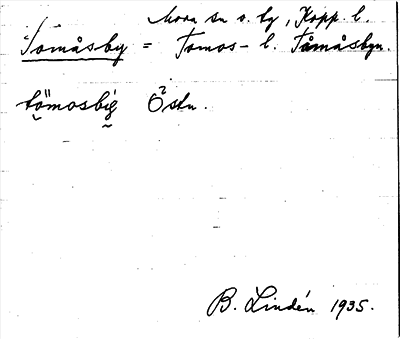 Mora sn o. by, Kopp. l.
Tomåsby = Tomos- l. Tåmåsbyn.
tömosbig Östn.
B. Lindén 1935.